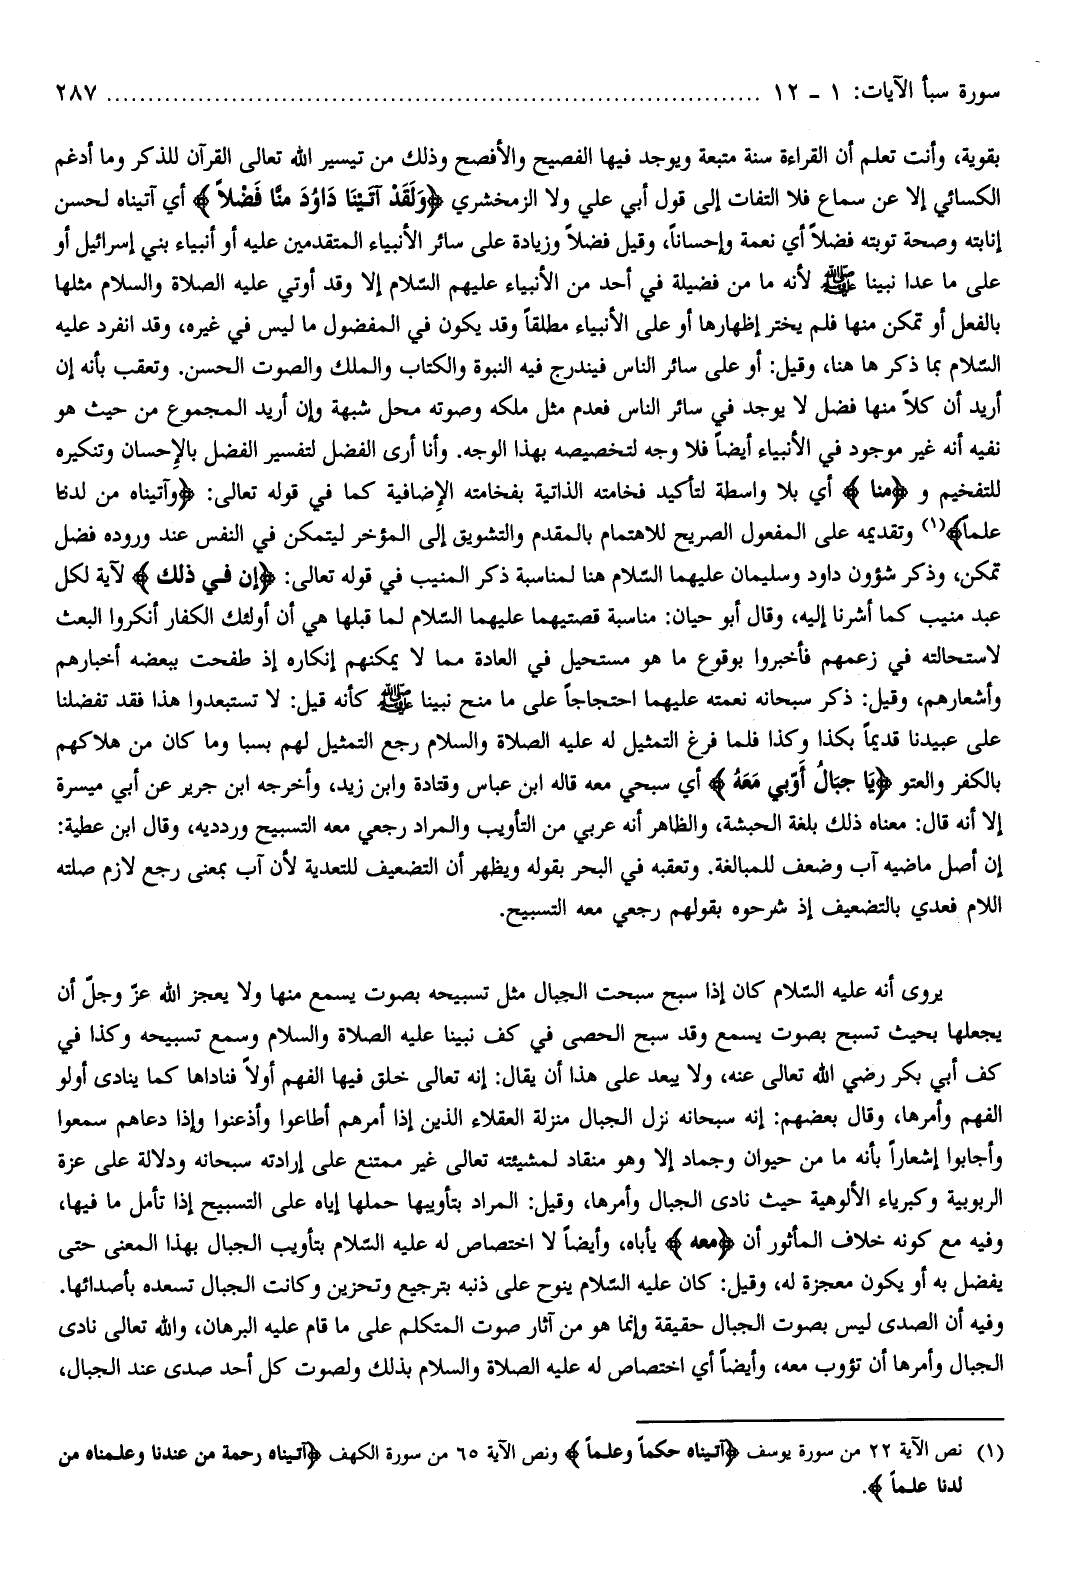 سورة سبأ الآيات: ١ - ١٢ ........................................................................ ٢٨٧
بقوية، وأنت تعلم أن القراءة سنة متبعة ويوجد فيها الفصيح والأفصح وذلك من تيسير الله تعالى القرآن للذكر وما أدغم
الكسائي إلا عن سماع فلا التفات إلى قول أبي علي ولا الزمخشري ﴿وَلَقَدْ آتَيْنَا دَاوُدَ منَّا فَضْلاً ﴾ أي آتيناه لحسن
إنابته وصحة توبته فضلاً أي نعمة وإحساناً، وقيل فضلاً وزيادة على سائر الأنبياء المتقدمين عليه أو أنبياء بني إسرائيل أو
على ما عدا نبينا ﷺ لأنه ما من فضيلة في أحد من الأنبياء عليهم السّلام إلا وقد أوتي عليه الصلاة والسلام مثلها
بالفعل أو تمكن منها فلم يختر إظهارها أو على الأنبياء مطلقاً وقد يكون في المفضول ما ليس في غيره، وقد انفرد عليه
السّلام بما ذكر ها هنا، وقيل: أو على سائر الناس فيندرج فيه النبوة والكتاب والملك والصوت الحسن. وتعقب بأنه إن
أريد أن كلاً منها فضل لا يوجد في سائر الناس فعدم مثل ملكه وصوته محل شبهة وإن أريد المجموع من حيث هو
نفيه أنه غير موجود في الأنبياء أيضاً فلا وجه لتخصيصه بهذا الوجه. وأنا أرى الفضل لتفسير الفضل بالإحسان وتنكيره
للتفخيم و ﴿منا ﴾ أي بلا واسطة لتأكيد فخامته الذاتية بفخامته الإضافية كما في قوله تعالى: ﴿وآتيناه من لدنا
علماً﴾(١) وتقديمه على المفعول الصريح للاهتمام بالمقدم والتشويق إلى المؤخر ليتمكن في النفس عند وروده فضل
تمكن، وذكر شؤون داود وسليمان عليهما السّلام هنا لمناسبة ذكر المنيب في قوله تعالى: ﴿إن في ذلك ﴾ لآية لكل
عبد منيب كما أشرنا إليه، وقال أبو حيان: مناسبة قصتيهما عليهما السّلام لما قبلها هي أن أولئك الكفار أنكروا البعث
لاستحالته في زعمهم فأخبروا بوقوع ما هو مستحيل في العادة مما لا يمكنهم إنكاره إذ طفحت ببعضه أخبارهم
وأشعارهم، وقيل: ذكر سبحانه نعمته عليهما احتجاجاً على ما منح نبينا ﷺ كأنه قيل: لا تستبعدوا هذا فقد تفضلنا
على عبيدنا قديماً بكذا وكذا فلما فرغ التمثيل له عليه الصلاة والسلام رجع التمثيل لهم بسبا وما كان من هلاكهم
بالكفر والعتو ﴿يَا جبَالُ أَوّبي مَعَهُ ﴾ أي سبحي معه قاله ابن عباس وقتادة وابن زيد، وأخرجه ابن جرير عن أبي ميسرة
إلا أنه قال: معناه ذلك بلغة الحبشة، والظاهر أنه عربي من التأويب والمراد رجعي معه التسبيح وردديه، وقال ابن عطية:
إن أصل ماضيه آب وضعف للمبالغة. وتعقبه في البحر بقوله ويظهر أن التضعيف للتعدية لأن آب بمعنى رجع لازم صلته
اللام فعدي بالتضعيف إذ شرحوه بقولهم رجعي معه التسبيح.
يروى أنه عليه السّلام كان إذا سبح سبحت الجبال مثل تسبيحه بصوت يسمع منها ولا يعجز الله عزّ وجلّ أن
يجعلها بحيث تسبح بصوت يسمع وقد سبح الحصى في كف نبينا عليه الصلاة والسلام وسمع تسبيحه وكذا في
كف أبي بكر رضي الله تعالى عنه، ولا يبعد على هذا أن يقال: إنه تعالى خلق فيها الفهم أولاً فناداها كما ينادى أولو
الفهم وأمرها، وقال بعضهم: إنه سبحانه نزل الجبال منزلة العقلاء الذين إذا أمرهم أطاعوا وأذعنوا وإذا دعاهم سمعوا
وأجابوا إشعاراً بأنه ما من حيوان وجماد إلا وهو منقاد لمشيئته تعالى غير ممتنع على إرادته سبحانه ودلالة على عزة
الربوبية وكبرياء الألوهية حيث نادى الجبال وأمرها، وقيل: المراد بتأويبها حملها إياه على التسبيح إذا تأمل ما فيها،
وفيه مع كونه خلاف المأثور أن ﴿معه ﴾ يأباه، وأيضاً لا اختصاص له عليه السّلام بتأويب الجبال بهذا المعنى حتى
يفضل به أو يكون معجزة له، وقيل: كان عليه السّلام ينوح على ذنبه بترجيع وتحزين وكانت الجبال تسعده بأصدائها.
وفيه أن الصدى ليس بصوت الجبال حقيقة وإنما هو من آثار صوت المتكلم على ما قام عليه البرهان، والله تعالى نادى
الجبال وأمرها أن تؤوب معه، وأيضاً أي اختصاص له عليه الصلاة والسلام بذلك ولصوت كل أحد صدى عند الجبال،
(١) نص الآية ٢٢ من سورة يوسف ﴿آتيناه حكماً وعلماً ﴾ ونص الآية ٦٥ من سورة الكهف ﴿آتيناه رحمة من عندنا وعلمناه من
لدنا علماً ﴾.